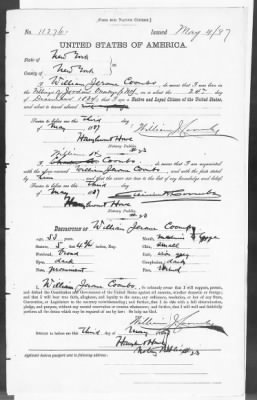 [FORM FOR NATIVE CITIZEN.]
No. 11736
Issued May 4/87
UNITED STATES OF AMERICA.
State of New York
County of New York
I, William Jerome Coombs, do swear that I was born in the
Village of Jordan N.Y., on or about the 24th day of
December, 1833; that I am a Native and Loyal Citizen of the United States,
and about to travel abroad
Sworn to before me this third
day of May 1887
William J. Coombs
Notary Public.
I, Coombs, do swear that I am acquainted
with the above named William Jerome Coombs, and with the facts
stated by him, and that the same are true to the best of my knowledge and belief.
Sworn to before me this third
day of May 1887
Notary Public.
DESCRIPTION OF William Jerome Coombs
Age, 53
Mouth, medium
Stature, 5 feet, inches, Eng.
Chin, small
Forehead, broad
Hair,
Eyes,
Complexion, dark
Nose, prominent
Face,
I, William Jerome Coombs, do solemnly swear that I will support, protect,
and defend the Constitution and Government of the United States against all enemies, whether domestic or foreign;
and that I will bear true faith, allegiance, and loyalty to the same, any ordinance, resolution, or law of any State,
Convention, or Legislature to the contrary notwithstanding; and further, that I do this with a full determination,
pledge, and purpose, without any mental reservation or evasion whatsoever; and further, that I will well and faithfully
perform all the duties which may be required of me by law: So help me God.
William J. Coombs
Sworn to before me this third day of May 1887
Notary Public
Applicant desires passport sent to following address: